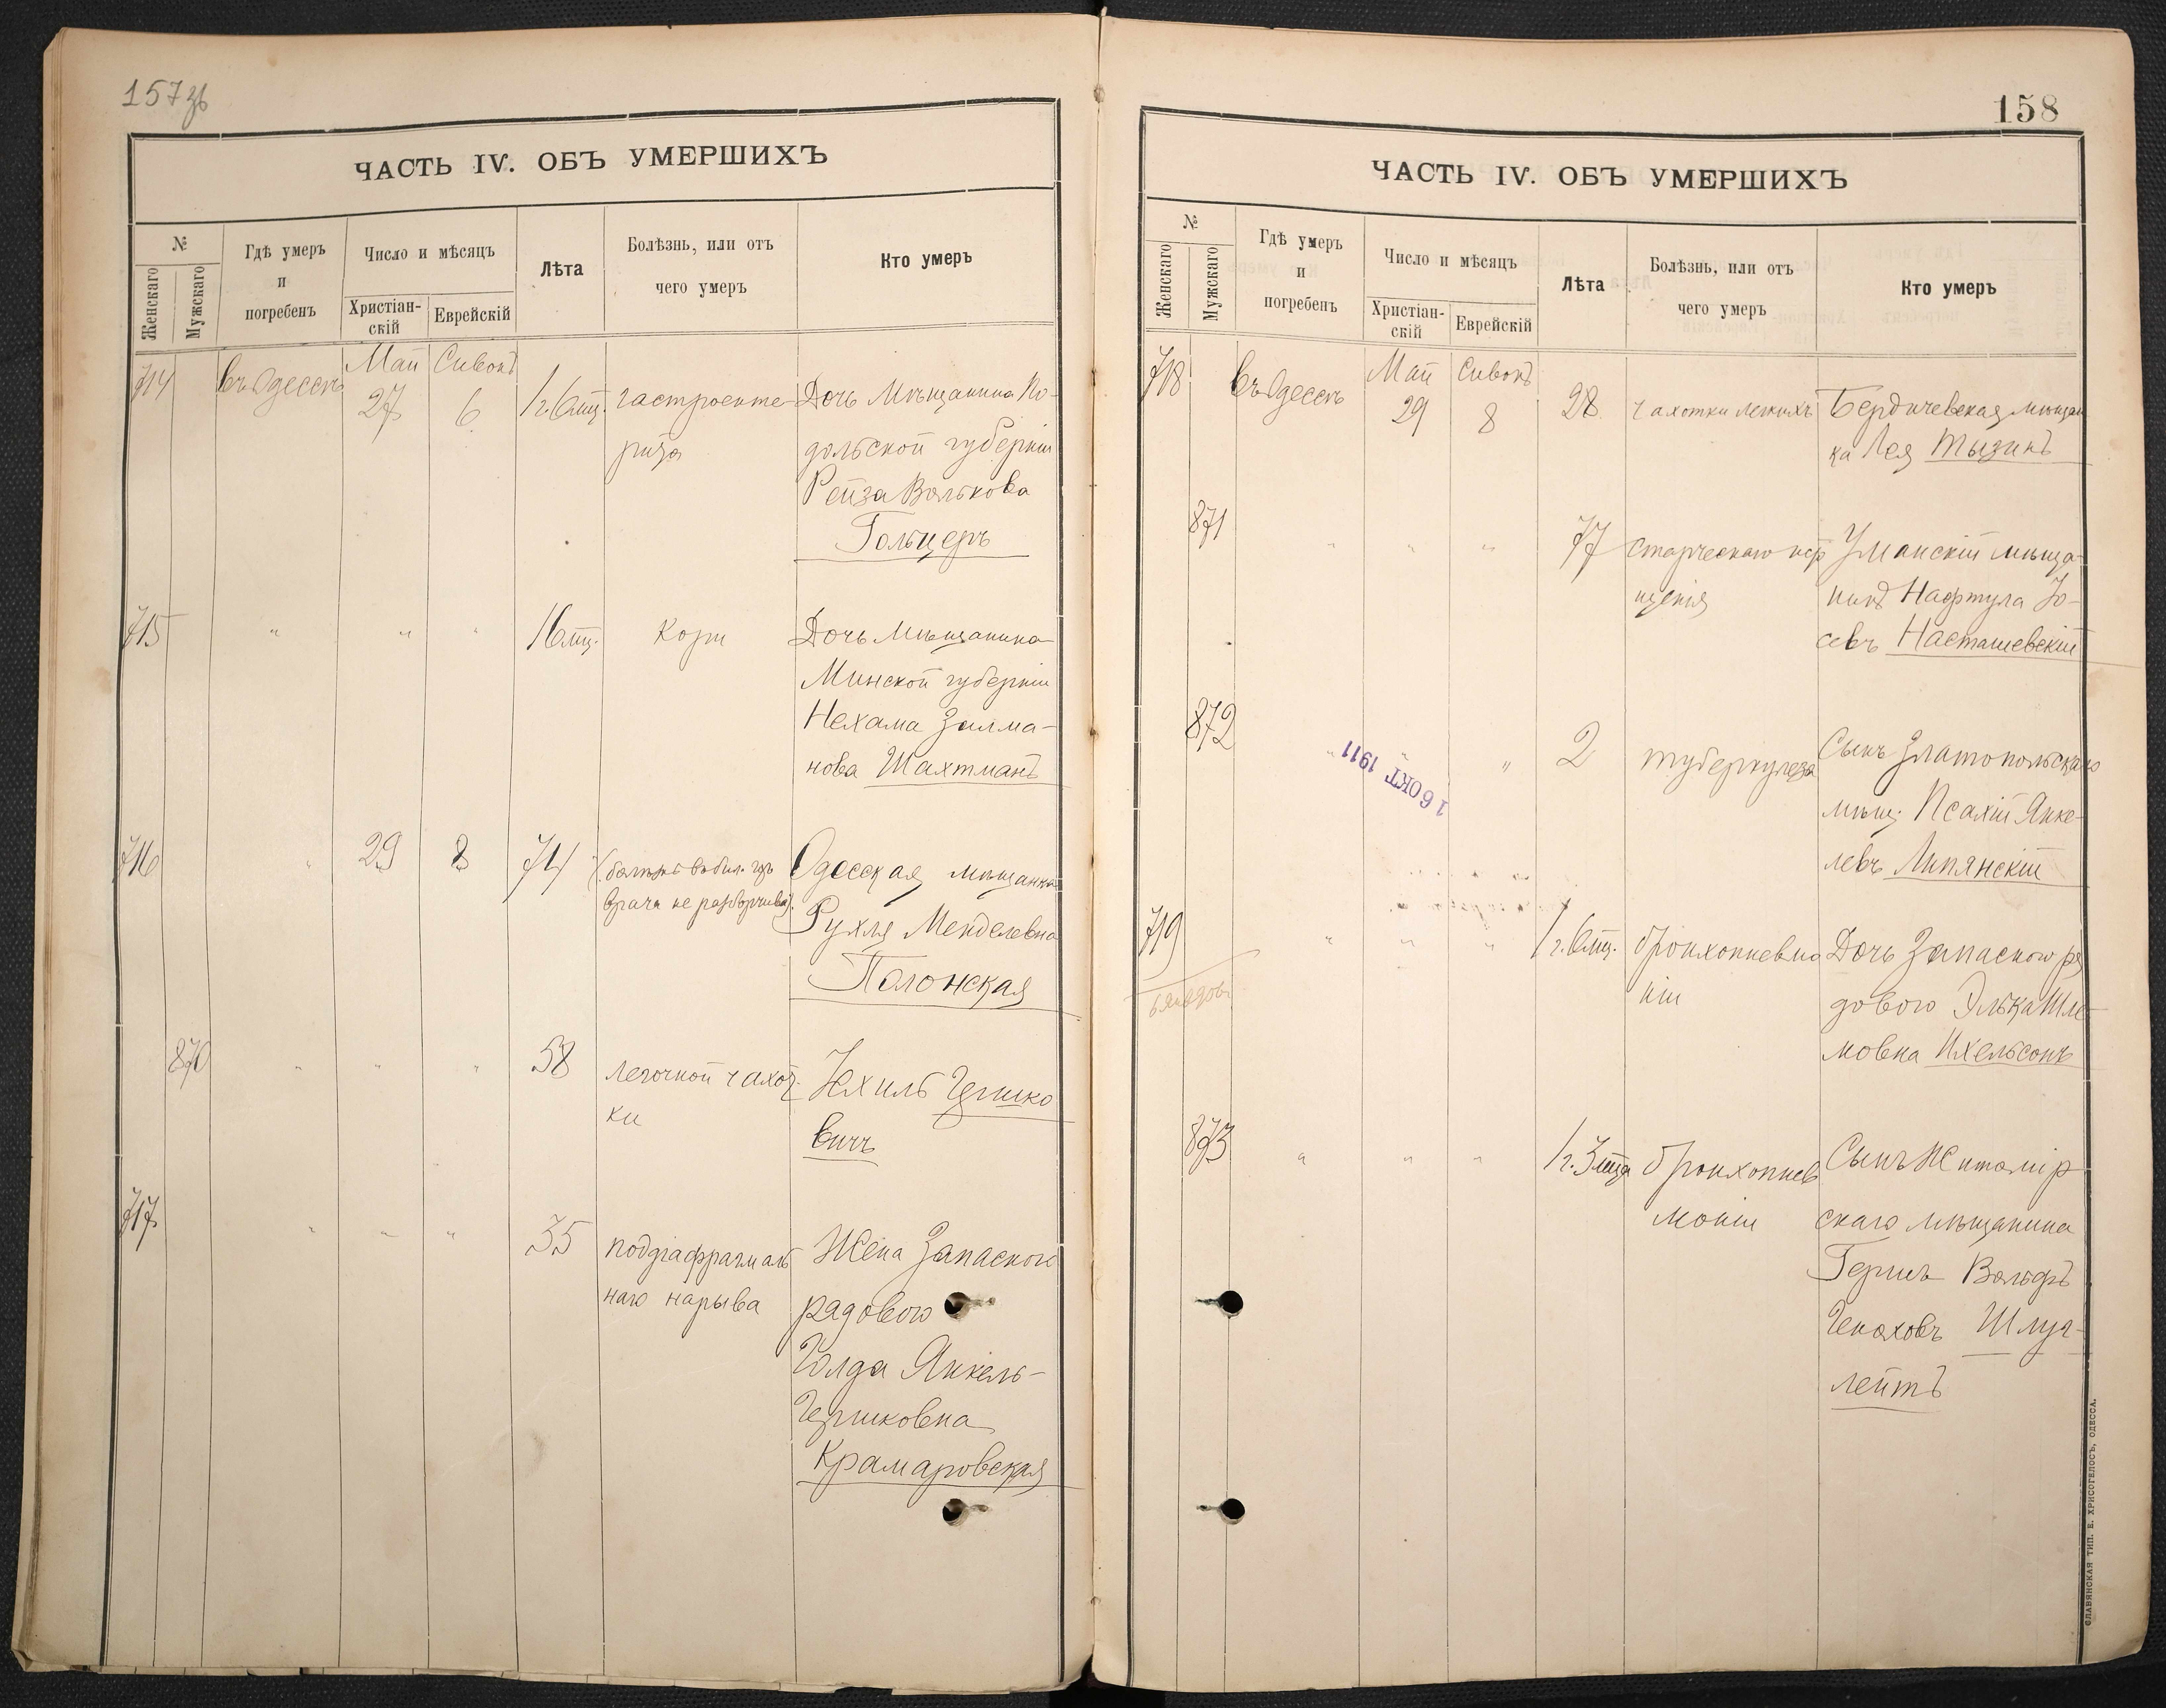 157
ЧАСТЬ IV. ОБЪ УМЕРШИХЪ
№
Женскаго
Мужскаго
Гдѣ умеръ
и
погребенъ
Число и мѣсяцъ
Христіан-
скій
Еврейскій
Лѣта
Болѣзнь, или отъ
чего умеръ
Кто умеръ
714
въ Одессѣ
Май
27
Сивонъ
6
1 г. 6 мц.
гастроэнте-
рита
Дочь Мѣщанина По-
дольской губерніи
Рейза Волькова
Гольцеръ
715
"
"
"
1 6 мц.
Кори
Дочь Мѣщанина
Минской губерніи
Нехама Залма-
нова Шахтманъ
716
"
29
8
74
врача не разборчива).
Одесская мѣщанка
Рухля Менделевна
Полонская
870
"
"
"
58
легочной чахот-
ки
Іехиль Гершко
вичъ
717
"
"
"
35
поддіафрагмаль
наго нарыва
Жена Запасного
рядового
Голда Янкель-
Гершковна
Крамаровская
158
ЧАСТЬ IV. ОБЪ УМЕРШИХЪ
№
Женскаго
Мужскаго
Гдѣ умеръ
и
погребенъ
Число и мѣсяцъ
Христіан-
скій
Еврейскій
Лѣта
Болѣзнь, или отъ
чего умеръ
Кто умеръ
718
въ Одессѣ
Май
29
Сивонъ
8
28
чахотки легкихъ
Бердичевская мѣщан
ка Лея Тызинъ
871
"
"
"
77
старческаго ист
ищенія
Уманскій мѣща-
нинъ Нафтула Іо-
севъ Насташевскій
872
"
"
"
16 ОКТ 1911
2
туберкулеза
Сынъ Златопольскаго
мѣщ. Псахій Янке-
левъ Липянскій
719
"
"
"
1 г. 6 мц.
бронхопневмо
ніи
Дочь Запасного ря
дового Элька Шле-
мовна Ихельсонъ
873
"
"
"
1 г. 3 мца
бронхопнев
моніи
Сынъ Житомір
скаго мѣщанина
Гершъ Вольфъ
Геноховъ Шлуг-
лейтъ
СЛАВЯНСКАЯ ТИП. Е. ХРИСОГЕЛОСЪ, ОДЕССА.